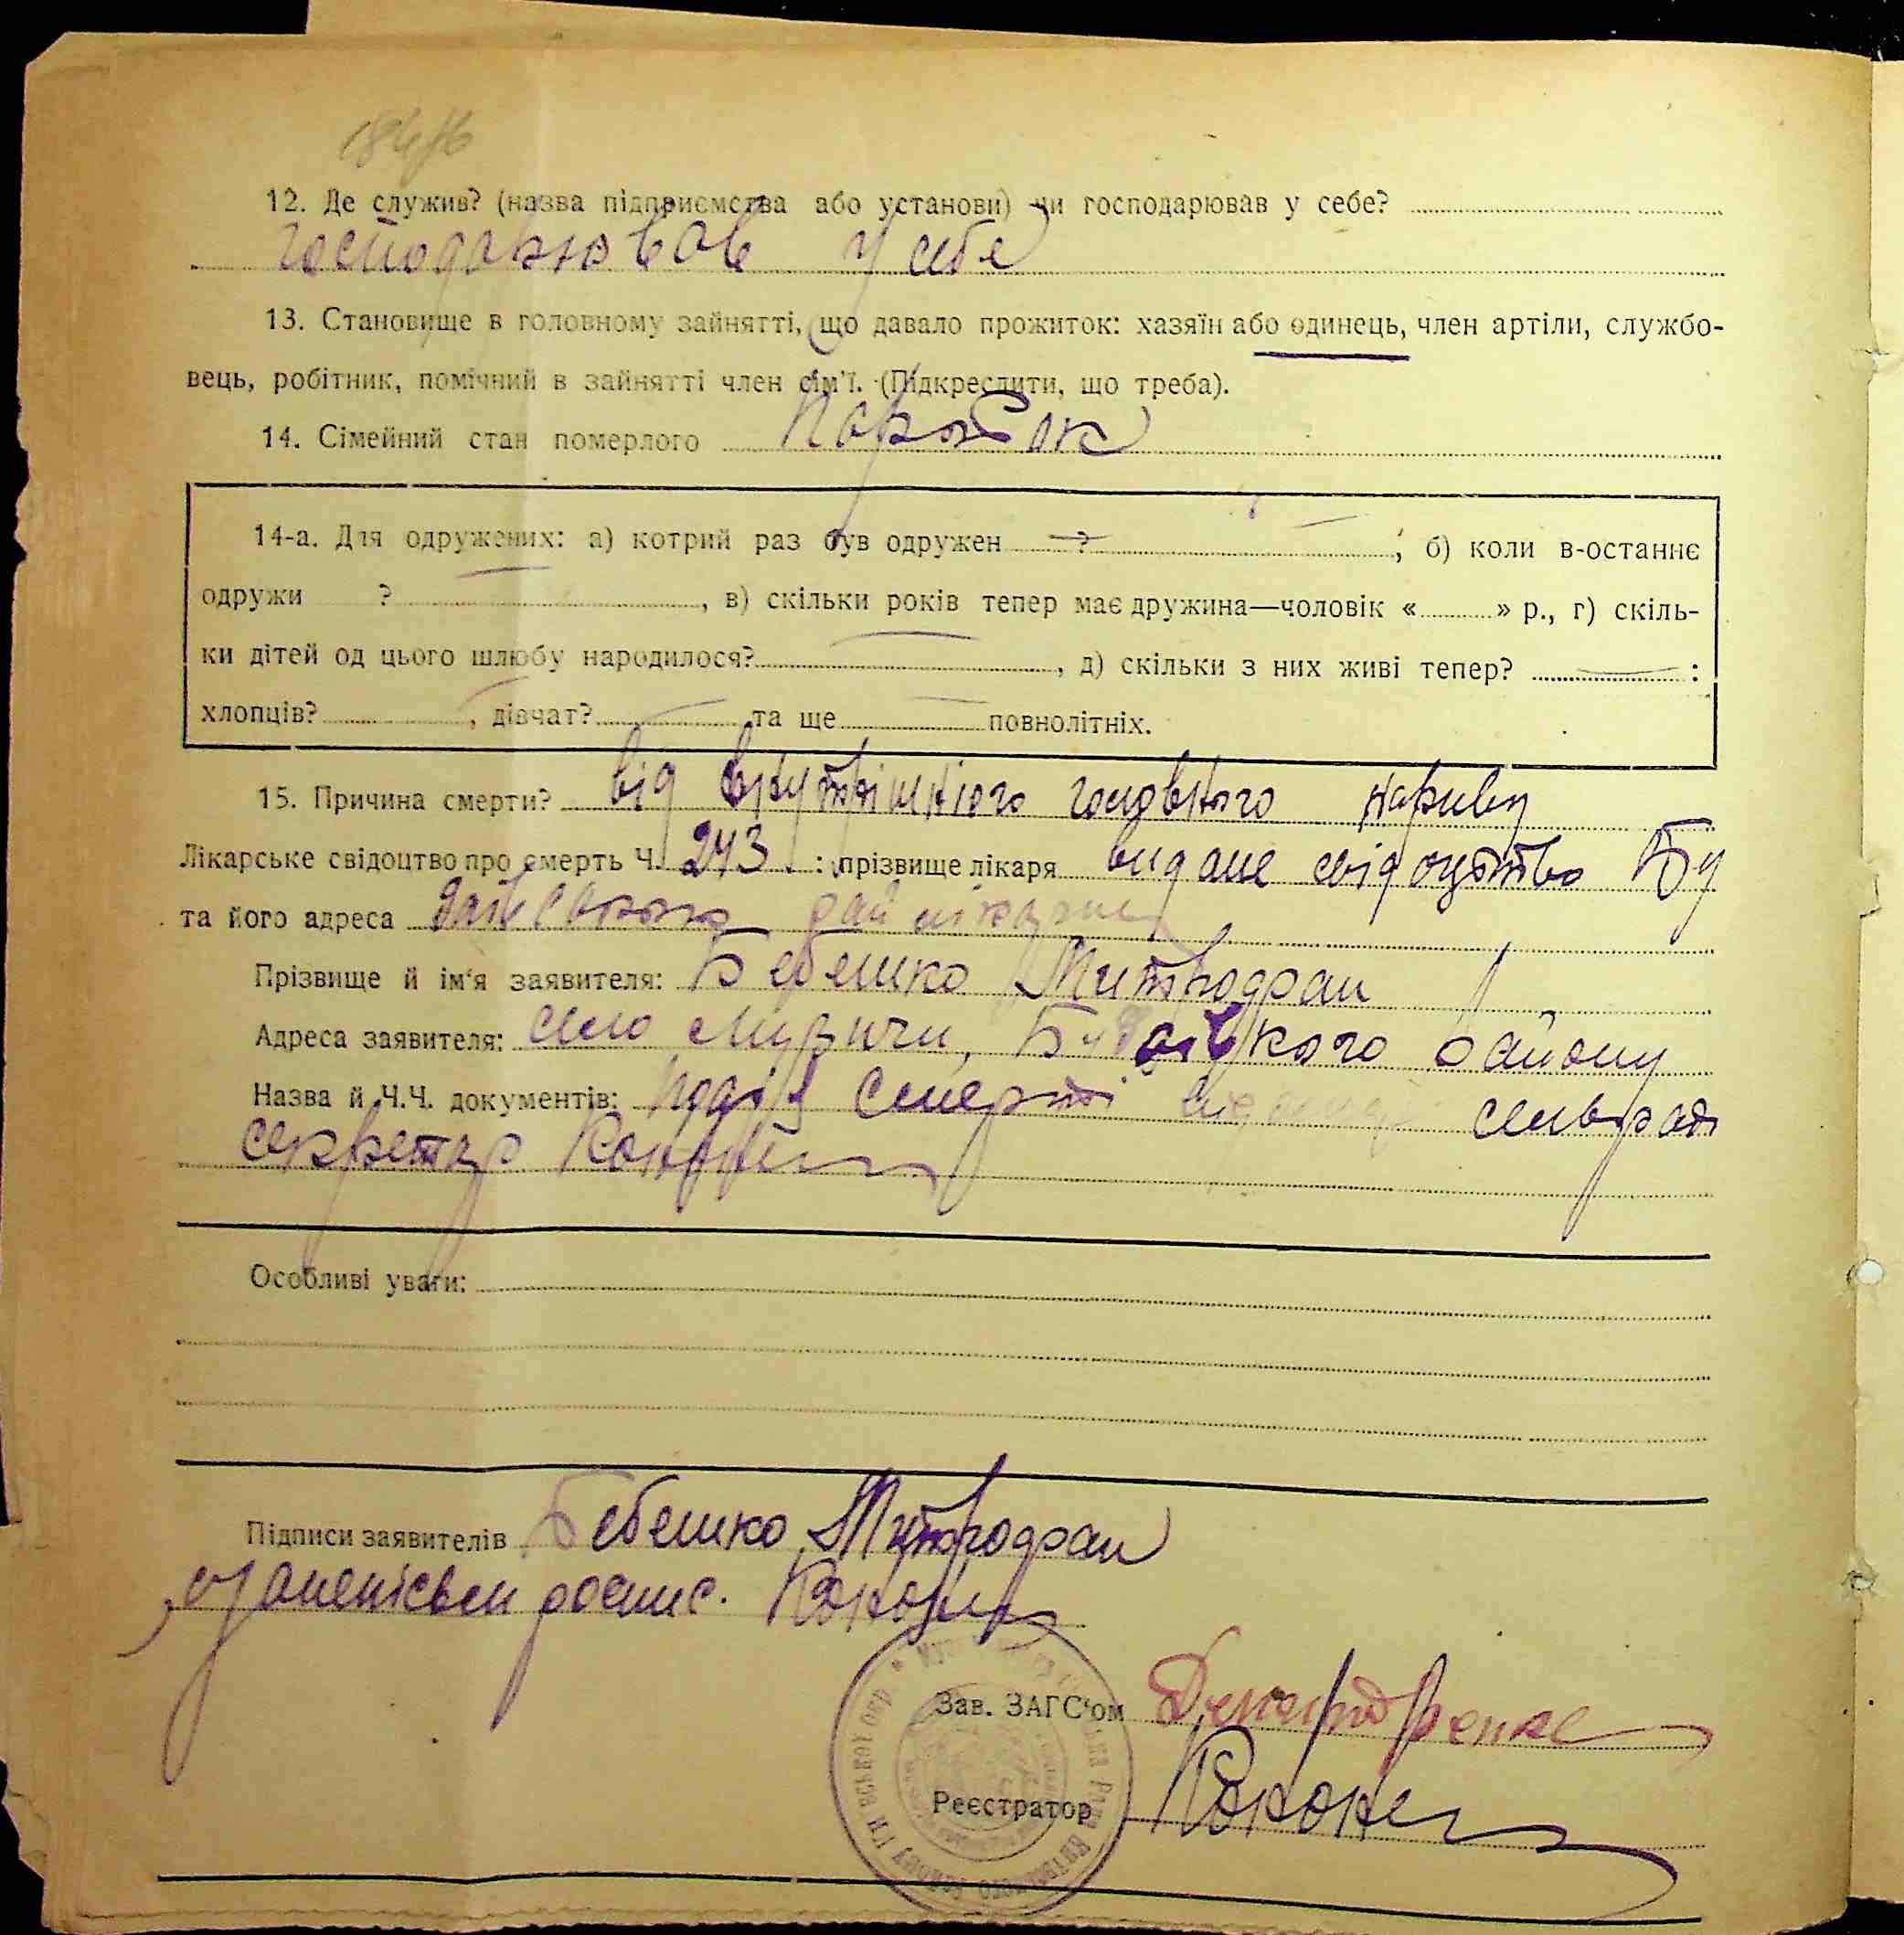 12. Де служив? (назва підприємства або установи) чи господарював у себе?
господарював у себе
13. Становище в головному зайнятті, що давало прожиток: хазяїн або одинець, член артіли, службо-
вець, робітник, помічний в зайнятті член сім'ї. (Підкреслити, що треба).
14. Сімейний стан померлого парубок
14-а. Для одружених: а) котрий раз був одружен ? , б) коли в-останнє
одружи ? , в) скільки років тепер має дружина—чоловік « » р., г) скіль-
ки дітей од цього шлюбу народилося? , д) скільки з них живі тепер? :
хлопців? , дівчат? та ще повнолітніх.
15. Причина смерти? від внутрішнього головного нариву
Лікарське свідоцтво про смерть Ч. 243 : прізвище лікаря видане свідоцтво Бу
та його адреса
Прізвище й ім'я заявителя: Бебешко Митродфан
Адреса заявителя: село Музичи, району
Назва й Ч.Ч. документів: смерті сельради
секретар
Особливі уваги:
Підписи заявителів Бебешко Митродфан
Зав. ЗАГС'ом
Реєстратор